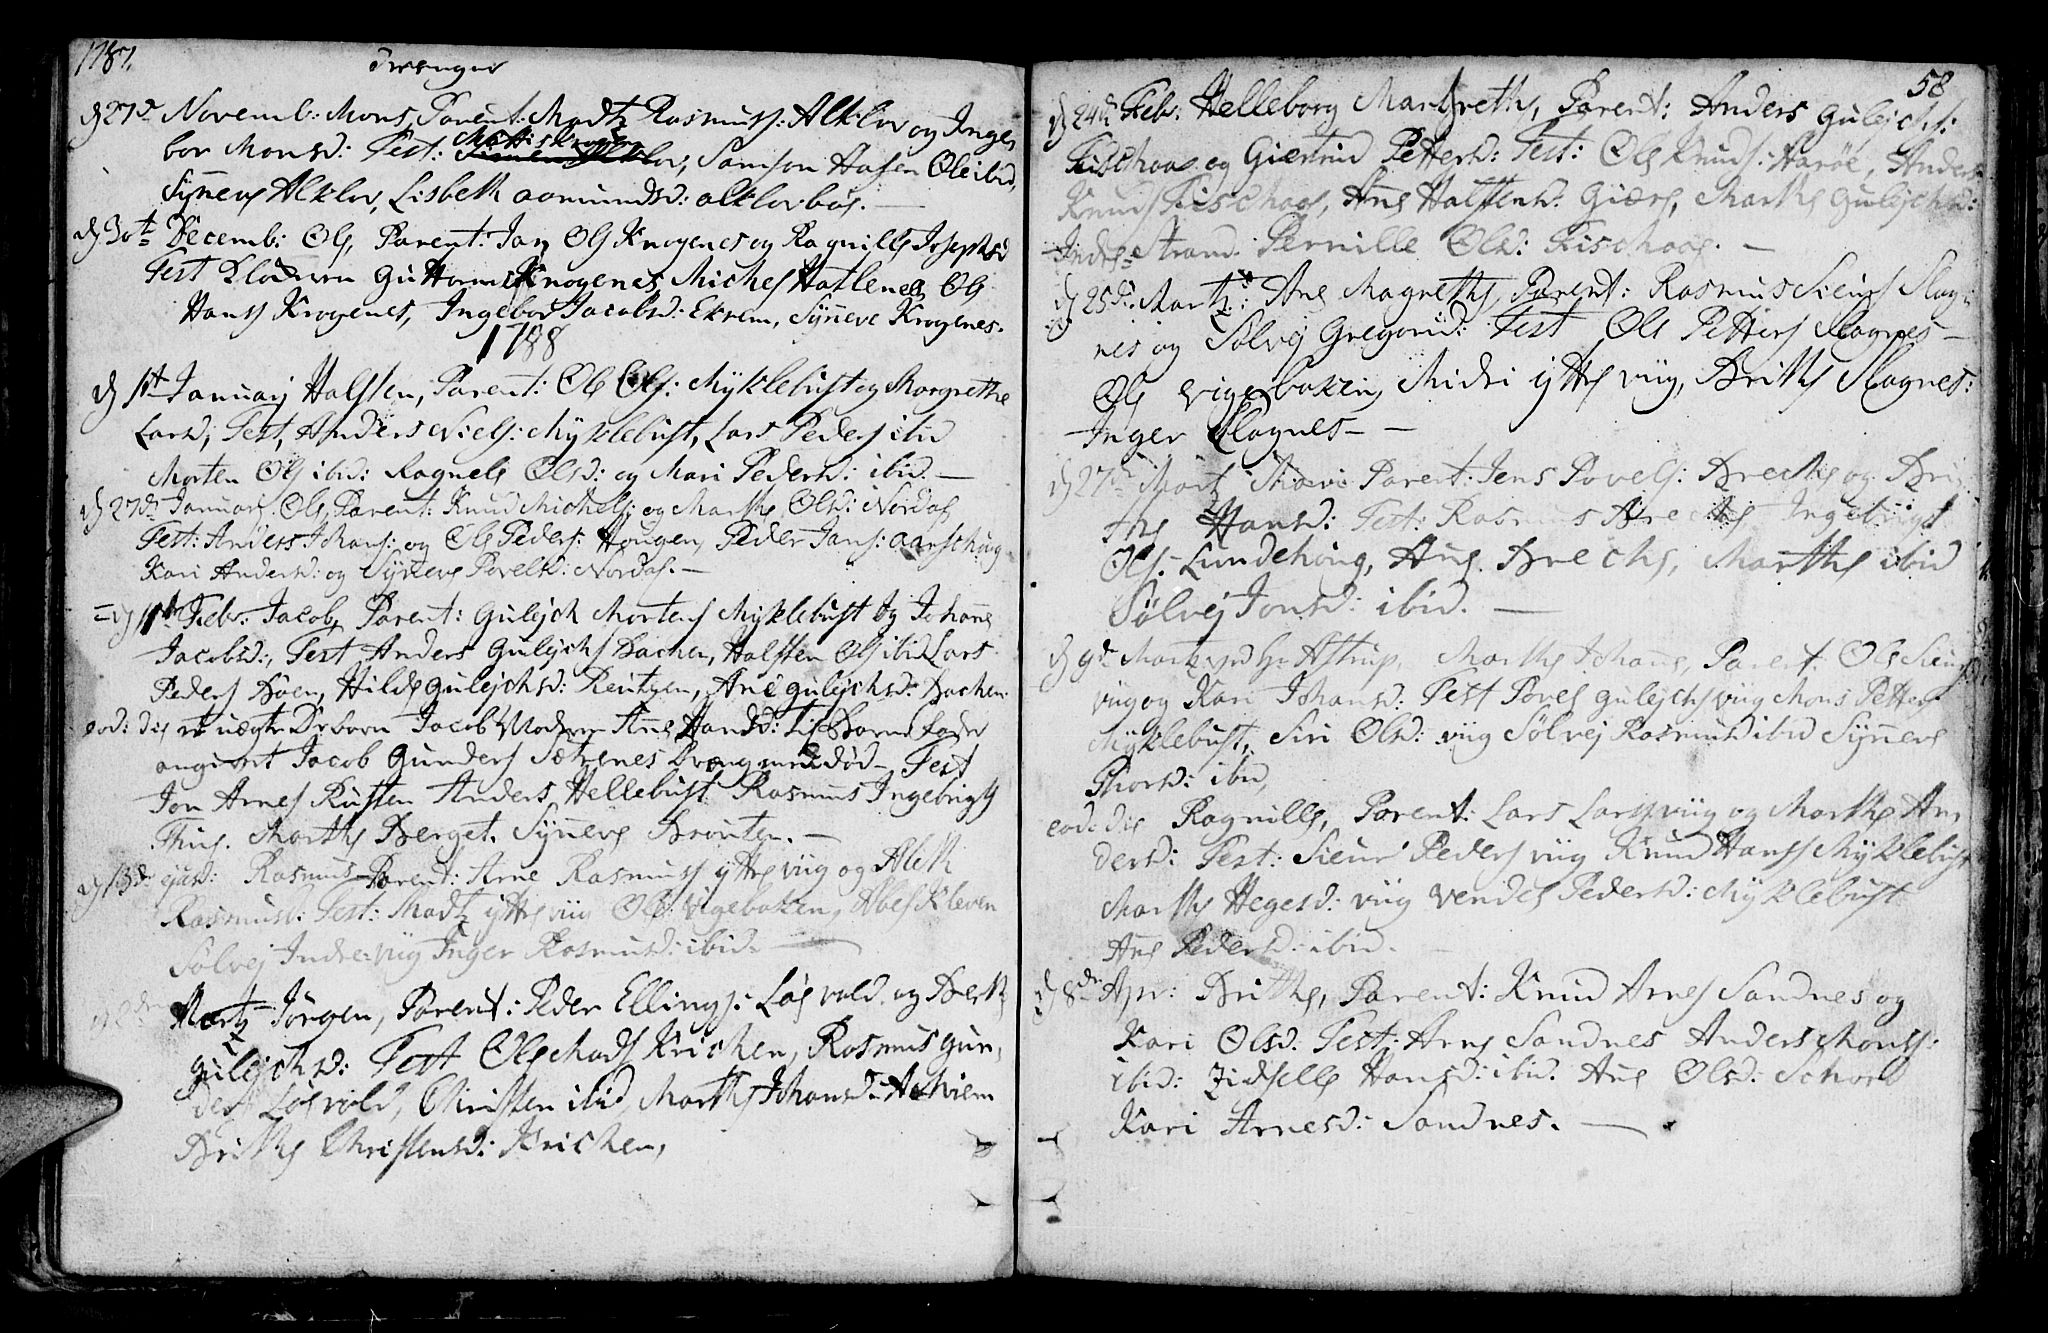 1787.
d 27de Novemb: Mons, Parent: Madtz Rasmuss: Alklov og Inge,
bor Monsd: Test: Samson Hafsen Ole ibid,
Synneve Alklov, Lisbeth aamundsd: alklovboe. —
d 30te Decemb: Ole, Parent: Jan Ols Krogenes og Ragnille Josephsd
Test Guttorms Krogenes, Michel Hatlenes Ole
Hans Krogenes, Ingebor Jacobsd: Ekrem, Synneve Krogenes.
1788
d 1te January Halsten, Parent: Ole Ols: Myklebust og Margrethe
Larsd, Test, Anders Niels: Myklebust, Lars Peders ibid
Morten Ols ibid: Ragnele Olsd: og Mari Pedersd: ibid. —
d 27de Januar: Ole, Parent: Knud Michels: og Marthe Olsd: Nordas
Test: Anders Johans: og Ole Peders: Hougen, Peder Jans: aarschoug
Kari Andersd: og Synneve Povelsd: Nordas. —
d 1te Febr: Jacob, Parent: Gulejch Mortens Myklebust og Johanne
Jacobsd:, Test Anders Gulejchs Bachen, Halsten Ols ibid Lars
Peders Böen, Hilde Gulejchsd: Reitzen, Ane Gulejchsd: Bachen
eod: die et uægte Drbarn Jacob Moder Ane Hansd: Barnefader
angivet Jacob Gunders Sætrenes Test
Jon Arnes Rusten Anders Hellebust Rasmus Ingebrigts
Marthe Berget. Synneve Bronten. —
d 13de ejusd: Rasmus Parent: Arne Rasmuss ytre viig og Abelh
Rasmusd: Test: Madtz ytre viig Ole Vigebaken, Abel Kleven
Sölvej Indre-viig Inger Rasmusd: ibid. —
Martz Jörgen, Parent: Peder Ellings: Löevold og Berthe
Gulejchsd: Test Ole Mads Krichen, Rasmus Gun,
ders Löevold, Christen ibid, Marthe Johansd: Aschiem
Brithe Christensd: Krichen,
58
d 24de Febr: Helleborg Margrethe, Parent: Anders Gulejchs:
Fischaae og Giertrud Pettersd: Test: Ole Knuds: Haröe, Anders
Knuds Fischaae, Ane Halstensd: Giære, Marthe Gulejchsd:
Indre-Strand Pernille Olsd: Fischaae. —
d 25de Martz: Ane Magrethe, Parent: Rasmus Siens Slag,
nes og Sölvej Gregorid: Test Ole Petters Slagnes —
Ole Vigebaken, Midri ytre viig, Brithe Slagnes:
Inger Slagnes — —
d 27de Martz Mari Parent: Jens Povels: Breche og Bri,
the Hansd: Test: Rasmus Breche Ingebrigt
Ols. Lundehoug, Ane Breche, Marthe ibid
Sölvej Jonsd: ibid. —
d 9de Martz ved Hr Astrup, Marthe Johanne, Parent: Ole Siens
viig og Kari Johansd: Test Povel Gulejchs viig Mons Petters
Myklebust, Siri Olsd: viig Sölvej Rasmusd ibid Synneve
Thorsd: ibid,
eod: die Ragnille, Parent: Lars Lars viig og Marthe An
dersd: Test: Sieur Peders viig Knud Hans Myklebust
Marthe Hegesd: viig Vendel Pedersd: Myklebust
Ane Pedersd: ibid.
d 8de Apr: Brithe, Parent: Knud Arnes Sandnes og
Kari Olsd: Test: Arne Sandnes Anders Mons:
ibid: Zidselle Hansd: ibid. Ane Olsd: Schord
Kari Arnesd: Sandnes. —